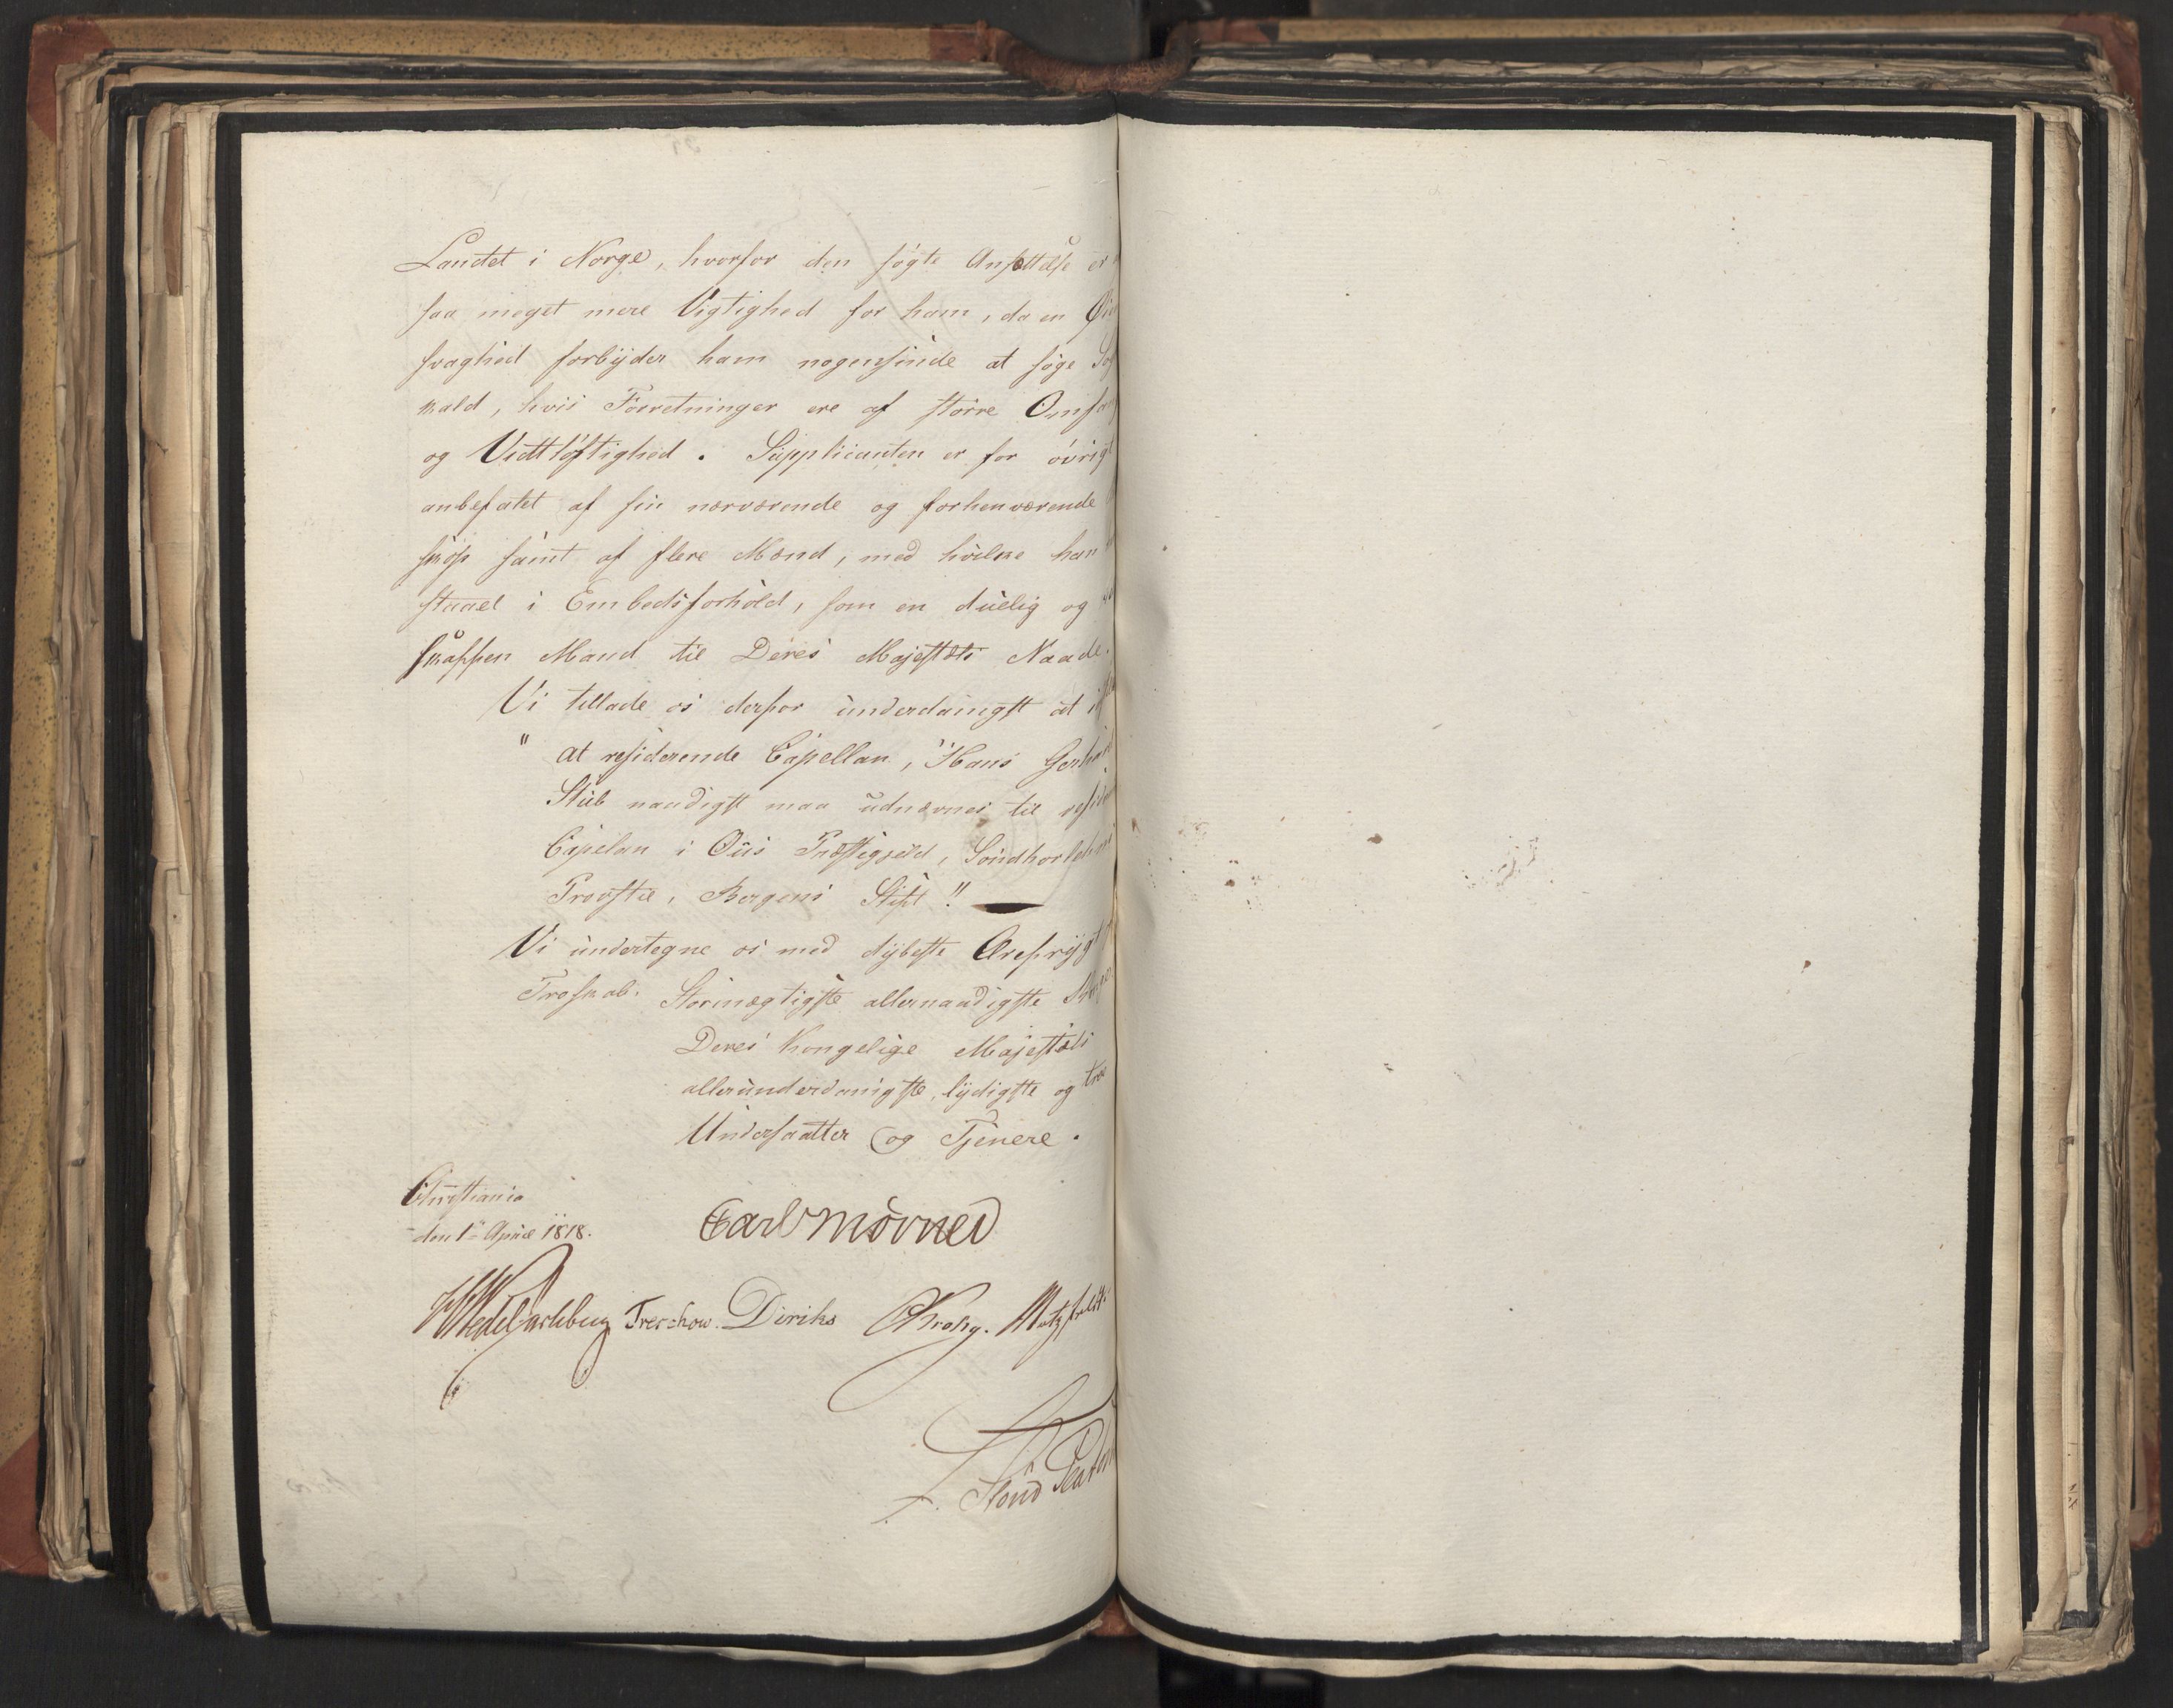 Landet i Norge, hvorfor den søgte Ansættelse er
saa meget mere Vigtighed for ham, da en
svaghed forbÿder ham nogensinde at søge
kald, hvis Forretninger ere af større
og Vidtløftighed. Supplicanten er for øvrigt
anbefalet af sin nærværende og forhenværende
skop samt af flere Mænd, med hvilke han
staaet i Embedsforhold, som en duelig og
skaffen Mand til Deres Majestæts Naade.
Vi tillade os derfor underdanigst at
" at residerende Capellan, Hans
Stub naadigst maa udnævnes til
Capelan i Ous Præstegjeld,
Provstie, Bergens Stift."
Vi undertegne os med dÿbeste
Troskab.
Stormægtigste allernaadigste
Deres Kongelige Majestæts
allerunderdanigste, lÿdigste og
Undersaatter og Tjenere.
Christiania
den 1ste April 1818.
Carl Mörner
Wedel Jarlsberg Treschow. Diriks Krohg. Motzfeldt